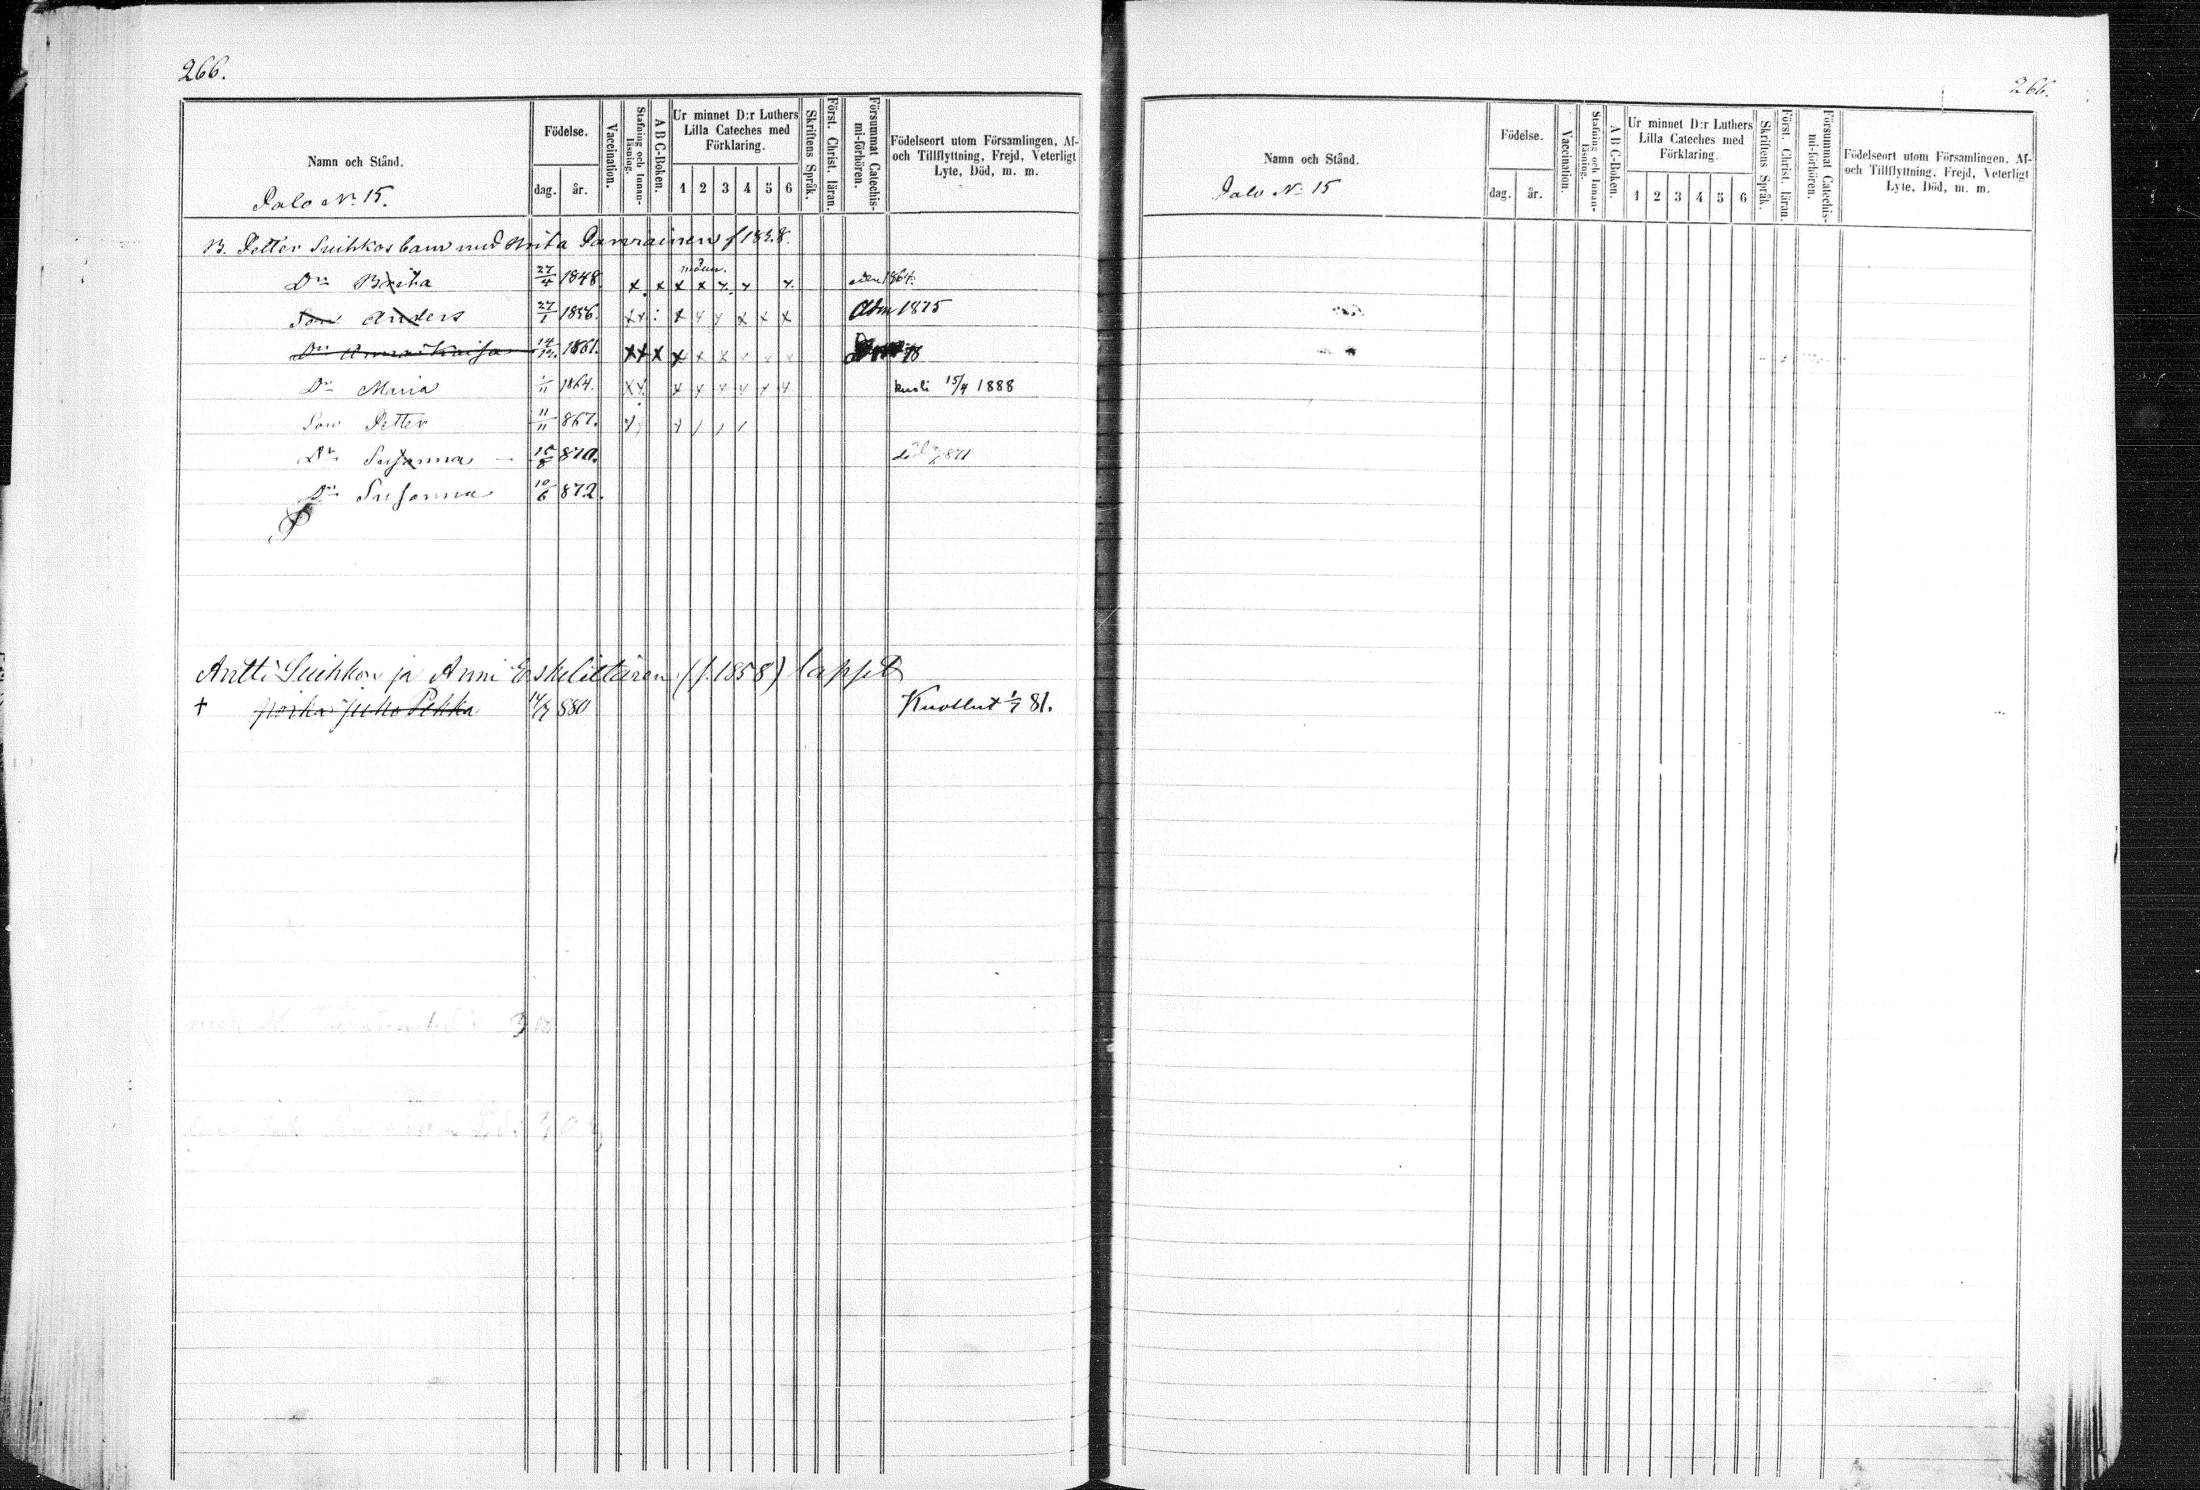 266.
Namn och Stånd.
Palo No 15.
Födelse.
dag. år.
Vaccination.
Stafning och Innan-läsning.
A B C-Boken.
Ur minnet D:r Luthers
Lilla Cateches med
Förklaring.
1 2 3 4 5 6
Skriftens Språk.
Först. Christ. läran.
Försummat Catechis-mi-förhören.
Födelseort utom Församlingen, Af-
och Tillflyttning, Frejd, Veterligt
Lyte, Död, m. m.
B. Petter Suihkos barn med Brita f 1828.
Dr Brita 27/4 1848. x x x x x x x 1864.
Son Anders 27/1 1856. x x x x x x x x Adm 1875
Dr Anna Kaisa 14/12 1861. x x x x x x x x x 78
Dr Maria 1/11 1864. x x x x x x x x kuoli 15/4 1888
Son Petter 11/11 867.
Dr Susanna 15/8 870. 871
Dr Susanna 10/6 872.
Antti Suihkon ja Anni (f. 1858) lapset
† poika Juho Pekka 14/7 880 Kuollut 1/7 81.
266.
Namn och Stånd.
Palo No 15
Födelse.
dag. år.
Vaccination.
Stafning och Innan-läsning.
A B C-Boken.
Ur minnet D:r Luthers
Lilla Cateches med
Förklaring.
1 2 3 4 5 6
Skriftens Språk.
Först. Christ. läran.
Försummat Catechis-mi-förhören.
Födelseort utom Församlingen, Af-
och Tillflyttning, Frejd, Veterligt
Lyte, Död, m. m.